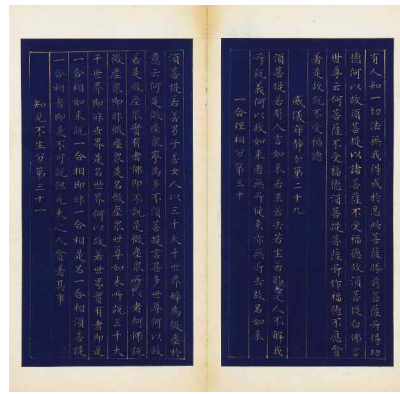 有人知一切法無我得成於忍此菩薩勝前菩薩所得功
德何以故須菩提以諸菩薩不受福德故須菩提白佛言
世尊云何菩薩不受福德須菩提菩薩所作福德不應貪
著是故說不受福德
威儀寂靜分第二十九
須菩提若有人言如來若來若去若坐若臥是人不解我
所說義何以故如來者無所從來亦無所去故名如來
一合理相分第三十
須菩提若善男子善女人以三千大千世界碎為微塵於
意云何是微塵眾寧為多不須菩提言甚多世尊何以故
若是微塵眾實有者佛即不說是微塵眾所以者何佛說
微塵眾即非微塵眾是名微塵眾世尊如來所說三千大
千世界即非世界是名世界何以故若世界實有者即是
一合相如來說一合相即非一合相是名一合相須菩提
一合相者即是不可說但凡夫之人貪著其事
知見不生分第三十一